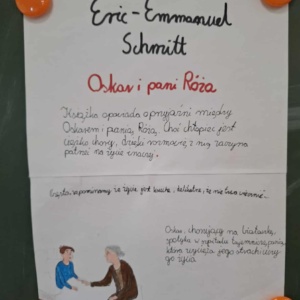 Eric-Emmanuel
Schmitt
Oskar i pani Róża
Książka opowiada o przyjaźni między
Oskarem i panią Różą. Choć chłopiec jest
ciężko chory, dzięki rozmowie z nią zaczyna
patrzeć na życie inaczej.
Często zapominamy, że życie jest kruche, delikatne, że nie trwa wiecznie...
Oskar, chorujący na białaczkę,
spotyka w szpitalu tajemniczą panią,
która wycisza jego strach i zmy
go życia